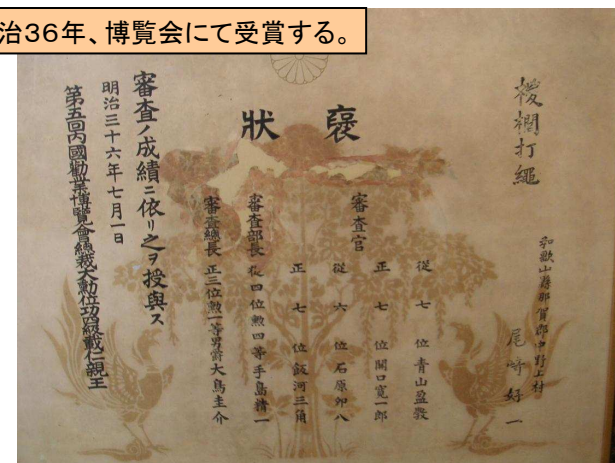 治36年、博覧会にて受賞する。
椶櫚打繩
和歌山縣那賀郡中野上村
尾﨑好一
褒狀
審査官
從七位青山
正七位關口寬一郎
從六位石原卯八
正七位飯河三角
審査部長從四位勲四等手島精一
審査總長正三位勲一等男爵大鳥圭介
審査ノ成績ニ依リ之ヲ授與ス
明治三十六年七月一日
第五回內國勸業博覽會總裁大勲位功級載仁親王